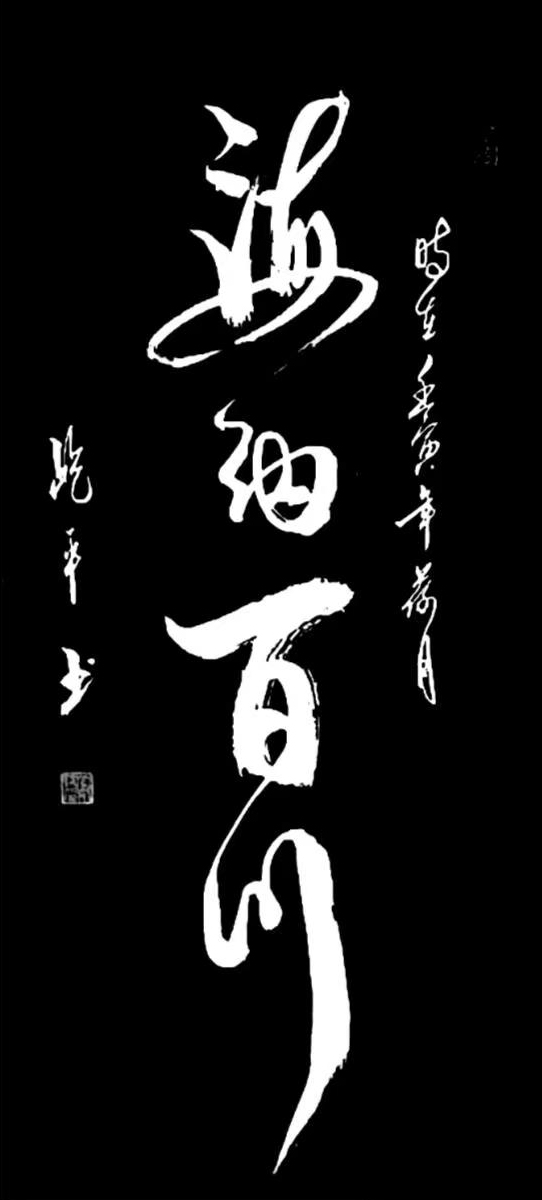 時在壬寅年荷月
海纳百川
平书